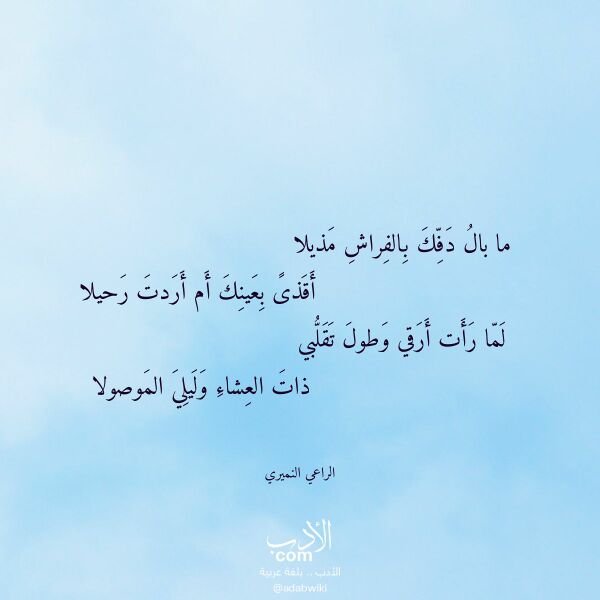 ما بالُ دَفِّكَ بِالفِراشِ مَذيلا
أَقَذىً بِعَينِكَ أَم أَرَدتَ رَحيلا
لَمّا رَأَت أَرَقي وَطولَ تَقَلُّبي
ذاتَ العِشاءِ وَلَيلِيَ المَوصولا
الراعي النميري
الأدب
.com
الأدب .. بلغة عربية
@adabwiki